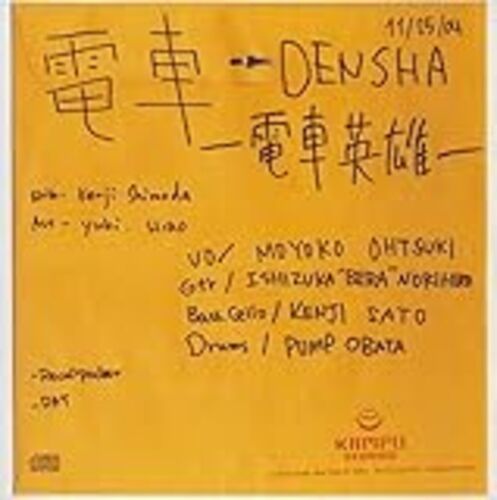 11/25/04
電車 → DENSHA
—電車英雄—
Kenji Shimoda
Art - Yuki
VO/ MOYOKO OHTSUKI
Gtr / ISHIZUKA "BERA" NORIHIRO
Bass, Cello / KENJI SATO
Drums / PUMP OBATA
- DAT